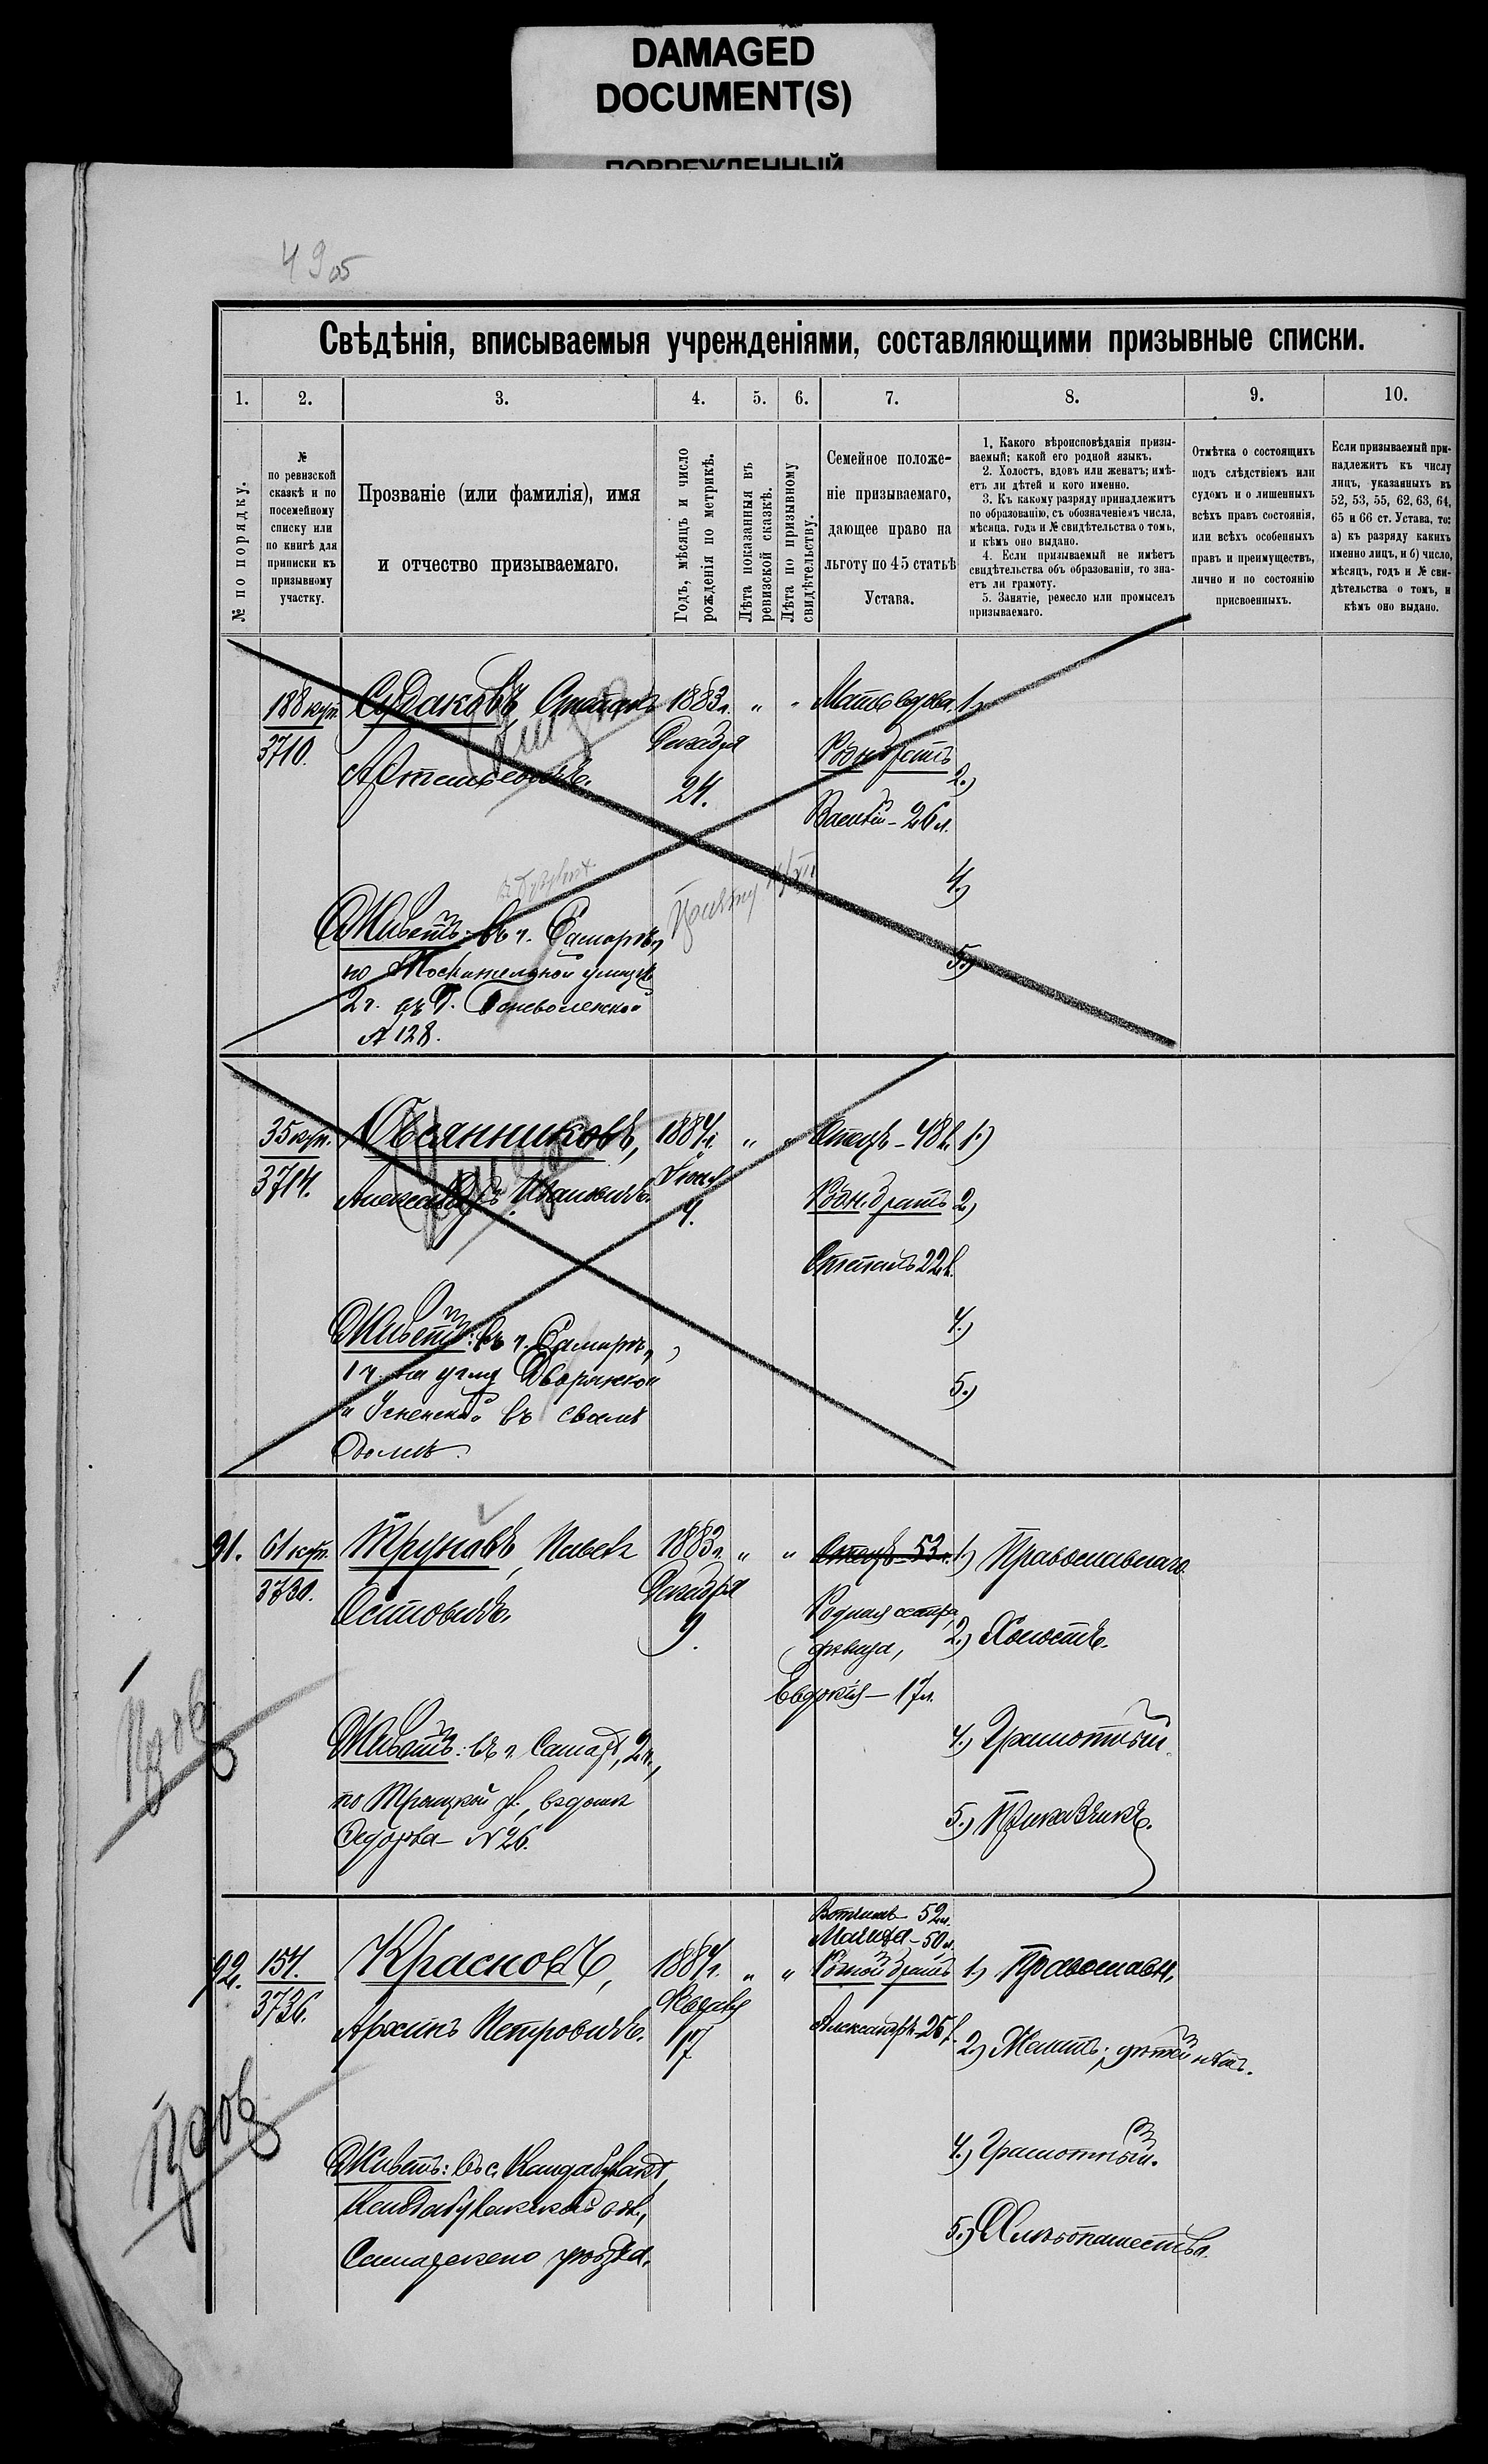 DAMAGED
DOCUMENT(S)
ПОВРЕЖДЕННЫЙ
4905
Свѣдѣнія, вписываемыя учрежденіями, составляющими призывные списки.
1. 2. 3. 4. 5. 6. 7. 8. 9. 10.
№ по порядку.
№
по ревизской
сказкѣ и по
посемейному
списку или
по книгѣ для
приписки къ
призывному
участку.
Прозваніе (или фамилія), имя
и отчество призываемаго.
Годъ, мѣсяцъ и число
рожденія по метрикѣ.
Лѣта показанныя въ
ревизской сказкѣ.
Лѣта по призывному
свидѣтельству.
Семейное положе-
ніе призываемаго,
дающее право на
льготу по 45 статьѣ
Устава.
1. Какого вѣроисповѣданія призы-
ваемый; какой его родной языкъ.
2. Холостъ, вдовъ или женатъ; имѣ-
етъ ли дѣтей и кого именно.
3. Къ какому разряду принадлежитъ
по образованію, съ обозначеніемъ числа,
мѣсяца, года и № свидѣтельства о томъ,
и кѣмъ оно выдано.
4. Если призываемый не имѣетъ
свидѣтельства объ образованіи, то зна-
етъ ли грамоту.
5. Занятіе, ремесло или промыселъ
призываемаго.
Отмѣтка о состоящихъ
подъ слѣдствіемъ или
судомъ и о лишенныхъ
всѣхъ правъ состоянія,
или всѣхъ особенныхъ
правъ и преимуществъ,
лично и по состоянію
присвоенныхъ.
Если призываемый при-
надлежитъ къ числу
лицъ, указанныхъ въ
52, 53, 55, 62, 63, 64,
65 и 66 ст. Устава, то:
а) къ разряду какихъ
именно лицъ, и б) число,
мѣсяцъ, годъ и № сви-
дѣтельства о томъ, и
кѣмъ оно выдано.
188 куп.
3710.
Судаковъ, Степанъ
1883 г.
Декабря
24.
" "
Мать вдова.
Родн. братъ
Василій - 26 л.
1.)
2.)
4.)
5.)
Живетъ: въ г. Самарѣ,
по Москательной улицѣ
2 ч.
№ 128.
35 куп.
3714.
Овсянниковъ,
Александръ Ивановичъ.
1884 г.
4.
" "
Отецъ - 48 л.
Родн. братъ
Степанъ 22 л.
1.)
2.)
4.)
5.)
Живетъ: въ г. Самарѣ,
1 ч. на углу Дворянской
и Успенской въ своемъ
домѣ.
91.
61 куп.
3730.
Труновъ, Павелъ
1883 г.
Декабря
9.
" "
Отецъ - 53 л.
Родная сестра,
дѣвица,
Евдокія - 17 л.
1.) Православнаго.
2.) Холостъ.
4.) Грамотный.
5.) Приказчикъ.
Живетъ: въ г. Самарѣ, 2 ч.,
по Троицкой ул., въ домѣ
Федорова - № 26.
92.
154.
3736.
Красновъ,
Архипъ Петровичъ.
1884 г.
Февраля
17
" "
Вотчимъ 52 л.
Мать - 50 л.
Родной братъ
Александръ - 26 л.
1.) Православн.
2.) Женатъ; дѣтей нѣтъ.
4.) Грамотный.
5.) Хлѣбопашество.
Живетъ: въ с. Кандабулакѣ,
Кандабулакской вол.,
Самарскаго уѣзда.